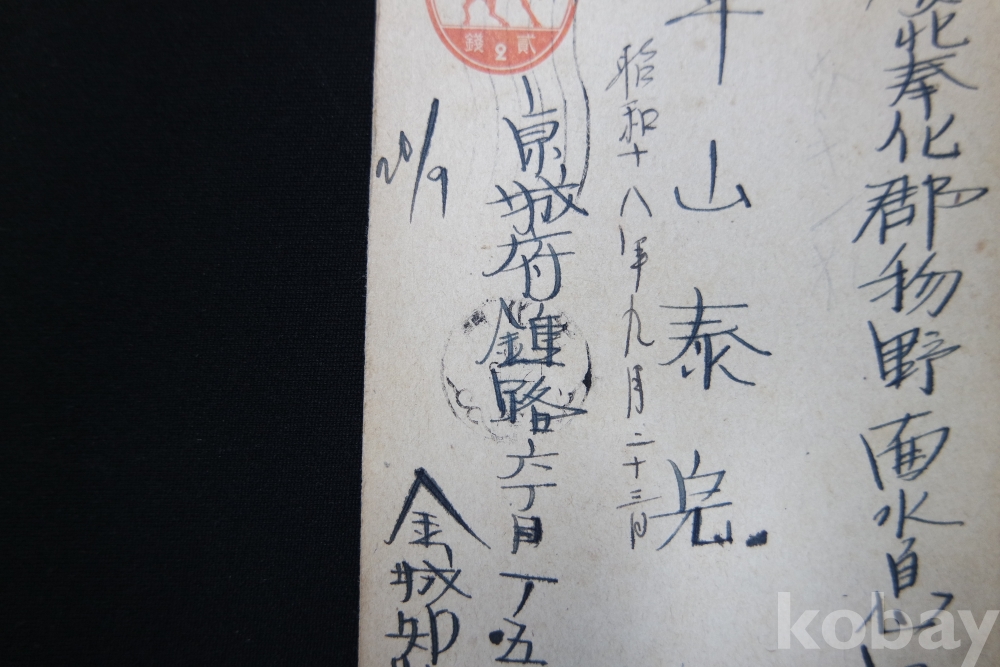 北奉化郡物野面水息
山泰
昭和十八年九月二十三日
貳2錢
京城府鍾路六丁目一ノ五
20/9
金城
kobay